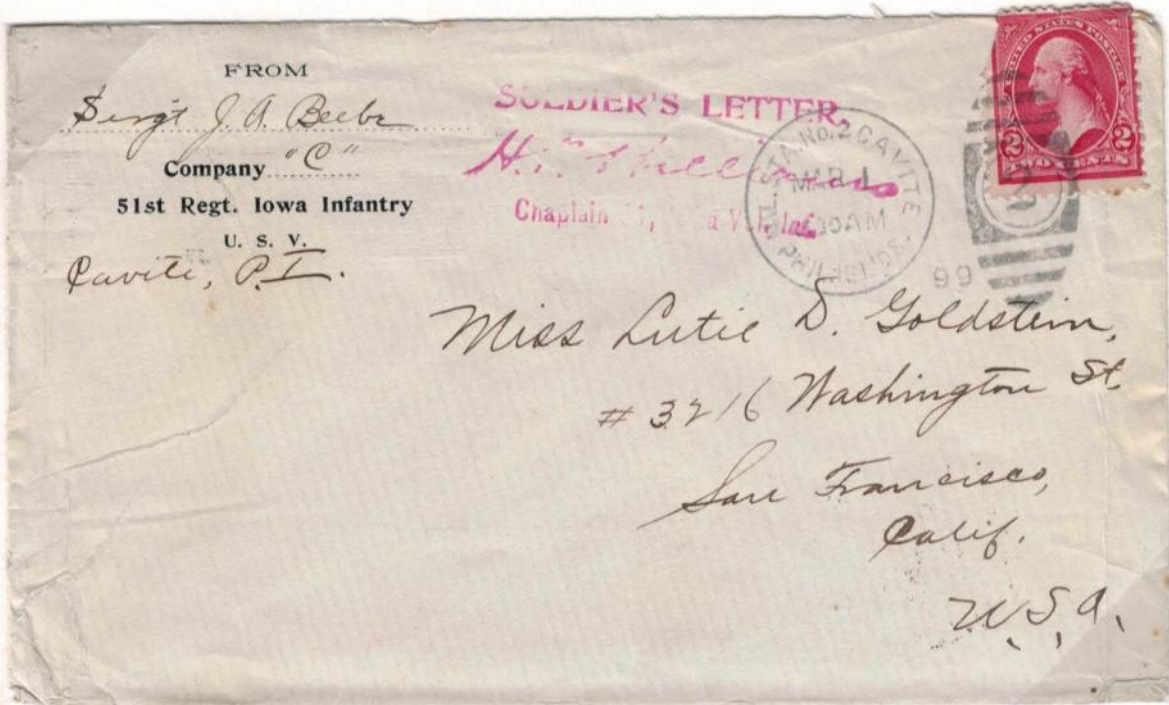 FROM
Sergt J. A. Beebe
Company "C"
51st Regt. Iowa Infantry
U. S. V.
Cavite, P.I.
SOLDIER'S LETTER,
H.
Chaplain Vol. Inf.
STA. No. 2 CAVITE
MAR 1
30AM
99
PHIL. ISL'DS.
UNITED STATES POSTAGE
2 2
TWO CENTS
2
Miss Lutie D. Goldstein,
# 3216 Washington St.
San Francisco,
Calif.
U.S.A.